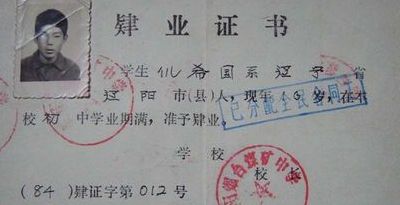 肄业证书
学生仉希国系辽宁省
辽阳市(县)人,现年16岁,在本
校初中学业期满,准予肄业。
已分配全民合同工
学校
校长
烟台煤矿中学
(84)肄证字第012号